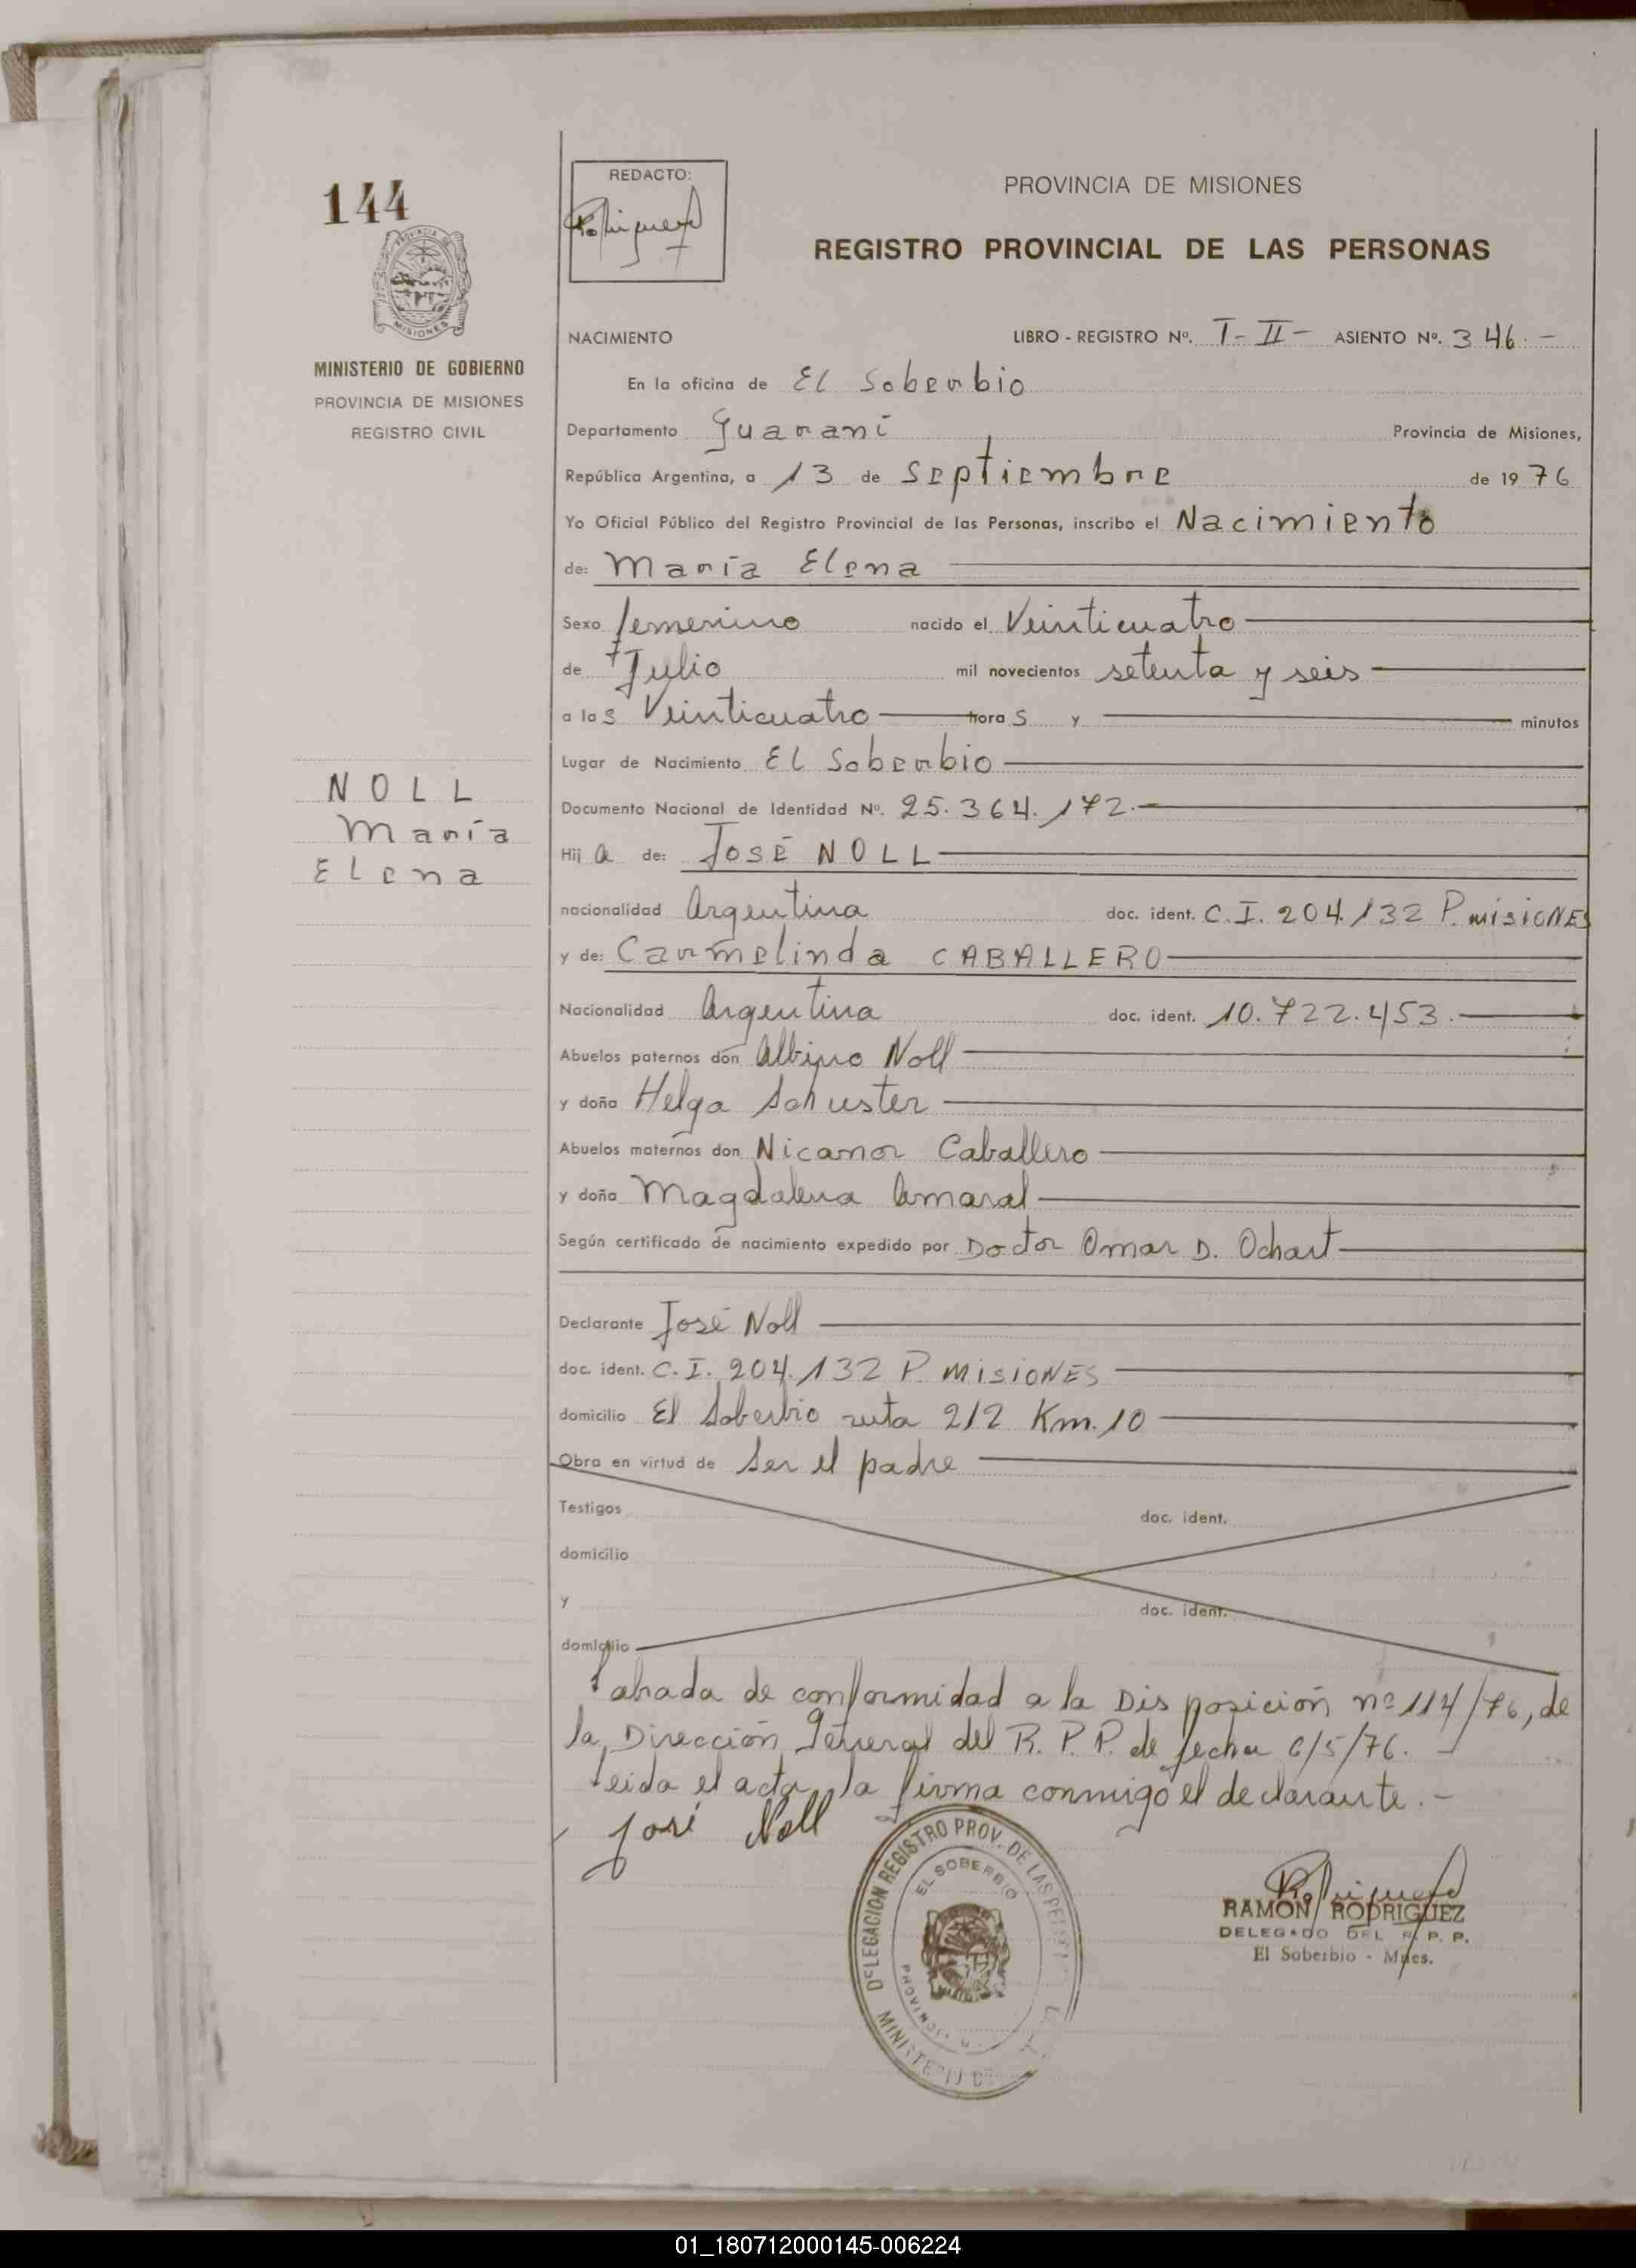 144
REDACTO:
PROVINCIA DE MISIONES
REGISTRO PROVINCIAL DE LAS PERSONAS
MINISTERIO DE GOBIERNO
PROVINCIA DE MISIONES
REGISTRO CIVIL
NACIMIENTO LIBRO - REGISTRO Nº. I - II - ASIENTO Nº. 346.-
En la oficina de El Soberbio
Departamento Guaraní Provincia de Misiones,
República Argentina, a 13 de Septiembre de 1976
Yo Oficial Público del Registro Provincial de las Personas, inscribo el Nacimiento
de: María Elena
Sexo femenino nacido el Veinticuatro
de Julio mil novecientos setenta y seis
a las Veinticuatro horas y minutos
Lugar de Nacimiento El Soberbio
NOLL
María
Elena
Documento Nacional de Identidad Nº. 25.364.172.-
Hija de: José NOLL
nacionalidad Argentina doc. ident. C.I. 204.132 P. MISIONES
y de: Carmelinda CABALLERO
Nacionalidad Argentina doc. ident. 10.722.453.
Abuelos paternos don Albino Noll
y doña Helga Schuster
Abuelos maternos don Nicanor Caballero
y doña Magdalena Amaral
Según certificado de nacimiento expedido por Doctor Omar D. Ochart
Declarante José Noll
doc. ident. C.I. 204.132 P. MISIONES
domicilio El Soberbio ruta 212 Km. 10
Obra en virtud de Ser el padre
Testigos doc. ident.
domicilio
y doc. ident.
domicilio
Labrada de conformidad a la Disposición nº 114/76, de
la Dirección General del R.P.P. de fecha 6/5/76.
Leida el acta, la firma conmigo el declarante.-
José Noll
DELEGACION REGISTRO PROV. DE LAS
EL SOBERBIO
RAMON RODRIGUEZ
DELEGADO DEL R. P. P.
El Soberbio - Mnes.
01_180712000145-006224